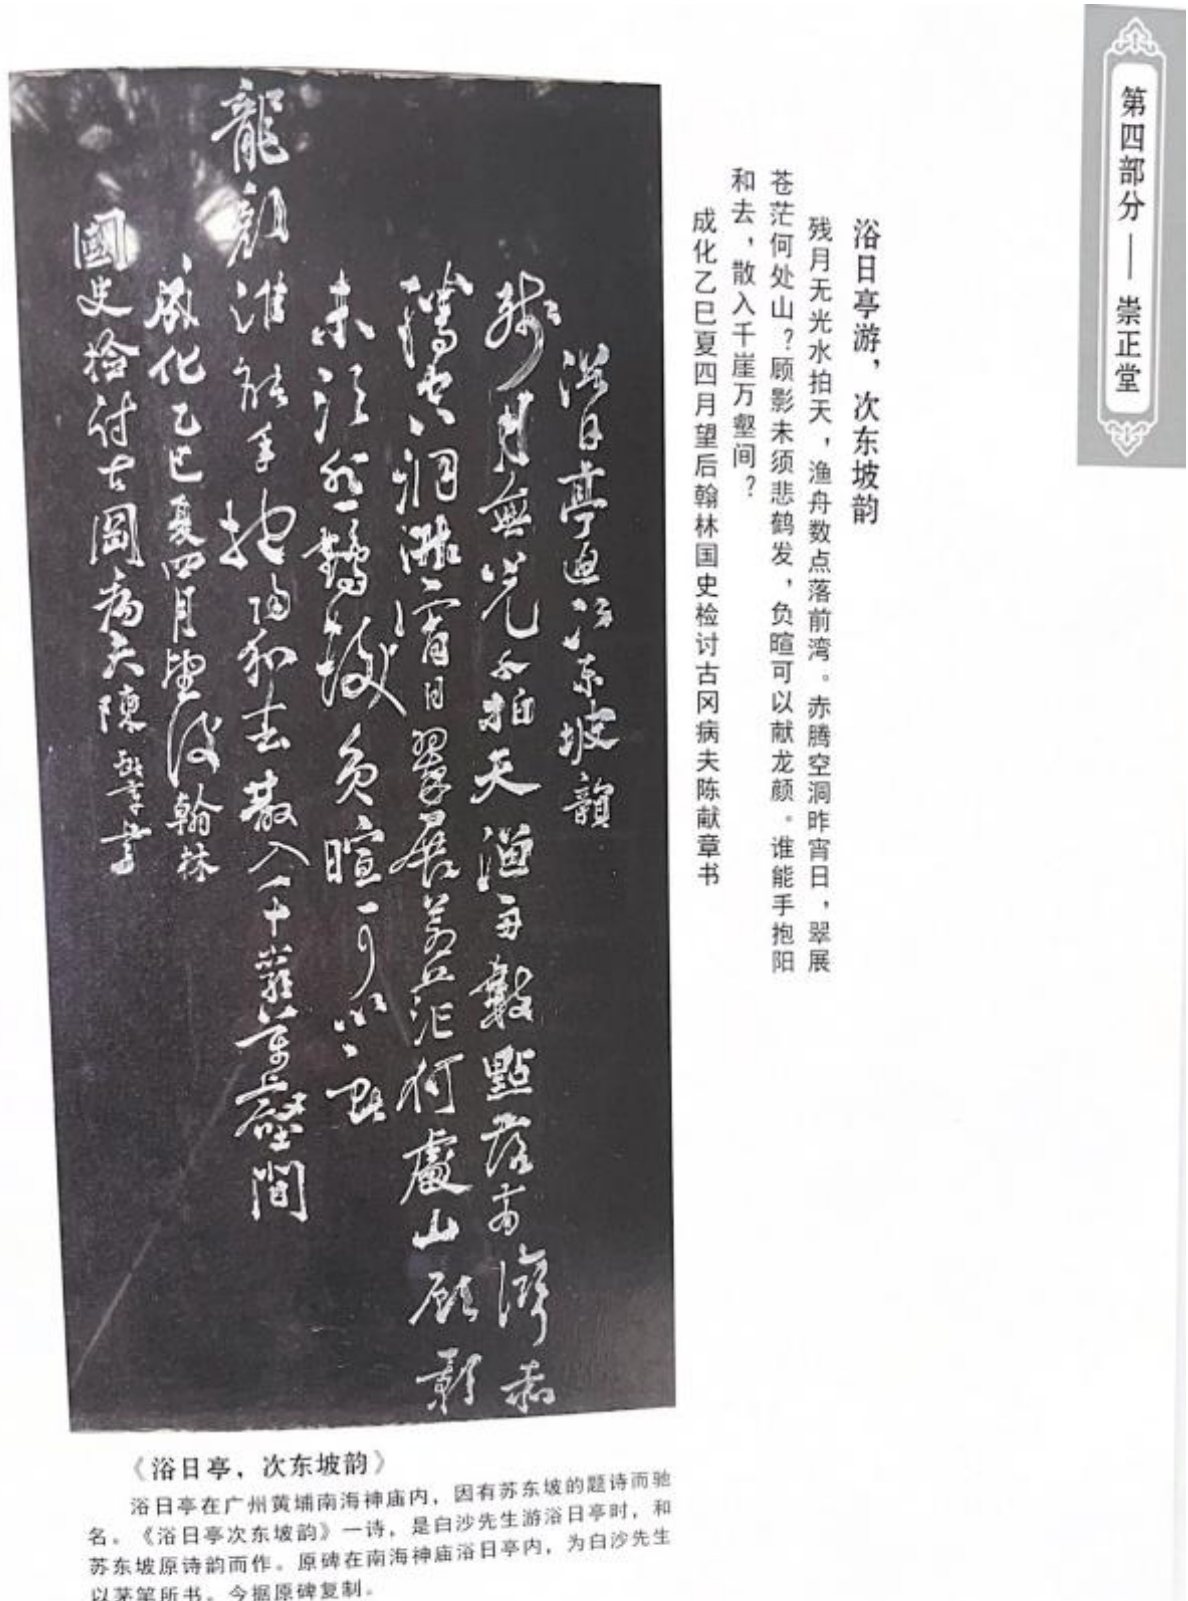 第四部分——崇正堂
浴日亭游，次东坡韵
残月无光水拍天，渔舟数点落前湾。赤腾空洞昨宵日，翠展
苍茫何处山？顾影未须悲鹤发，负暄可以献龙颜。谁能手抱阳
和去，散入千崖万壑间？
成化乙巳夏四月望后翰林国史检讨古冈病夫陈献章书
浴日亭追次东坡韻
残月無光水拍天漁舟數點落前灣赤
騰空洞昨宵日翠展蒼茫何處山顧影
未須悲鶴發負暄可以獻
龍顔誰能手抱陽和去散入千崖萬壑間
成化乙巳夏四月望後翰林
國史檢討古岡病夫陳獻章書
《浴日亭，次东坡韵》
浴日亭在广州黄埔南海神庙内，因有苏东坡的题诗而驰
名。《浴日亭次东坡韵》一诗，是白沙先生游浴日亭时，和
苏东坡原诗韵而作。原碑在南海神庙浴日亭内，为白沙先生
以茅笔所书。今据原碑复制。